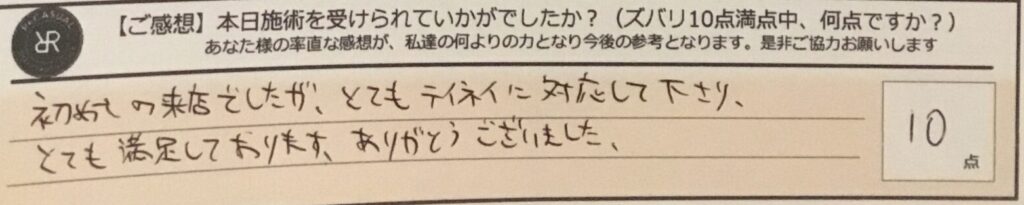 【ご感想】本日施術を受けられていかがでしたか？（ズバリ10点満点中、何点ですか？）
あなた様の率直な感想が、私達の何よりの力となり今後の参考となります。是非ご協力お願いします
初めての来店でしたが、とてもテイネイに対応して下さり、
とても満足しております、ありがとうございました、
10
点